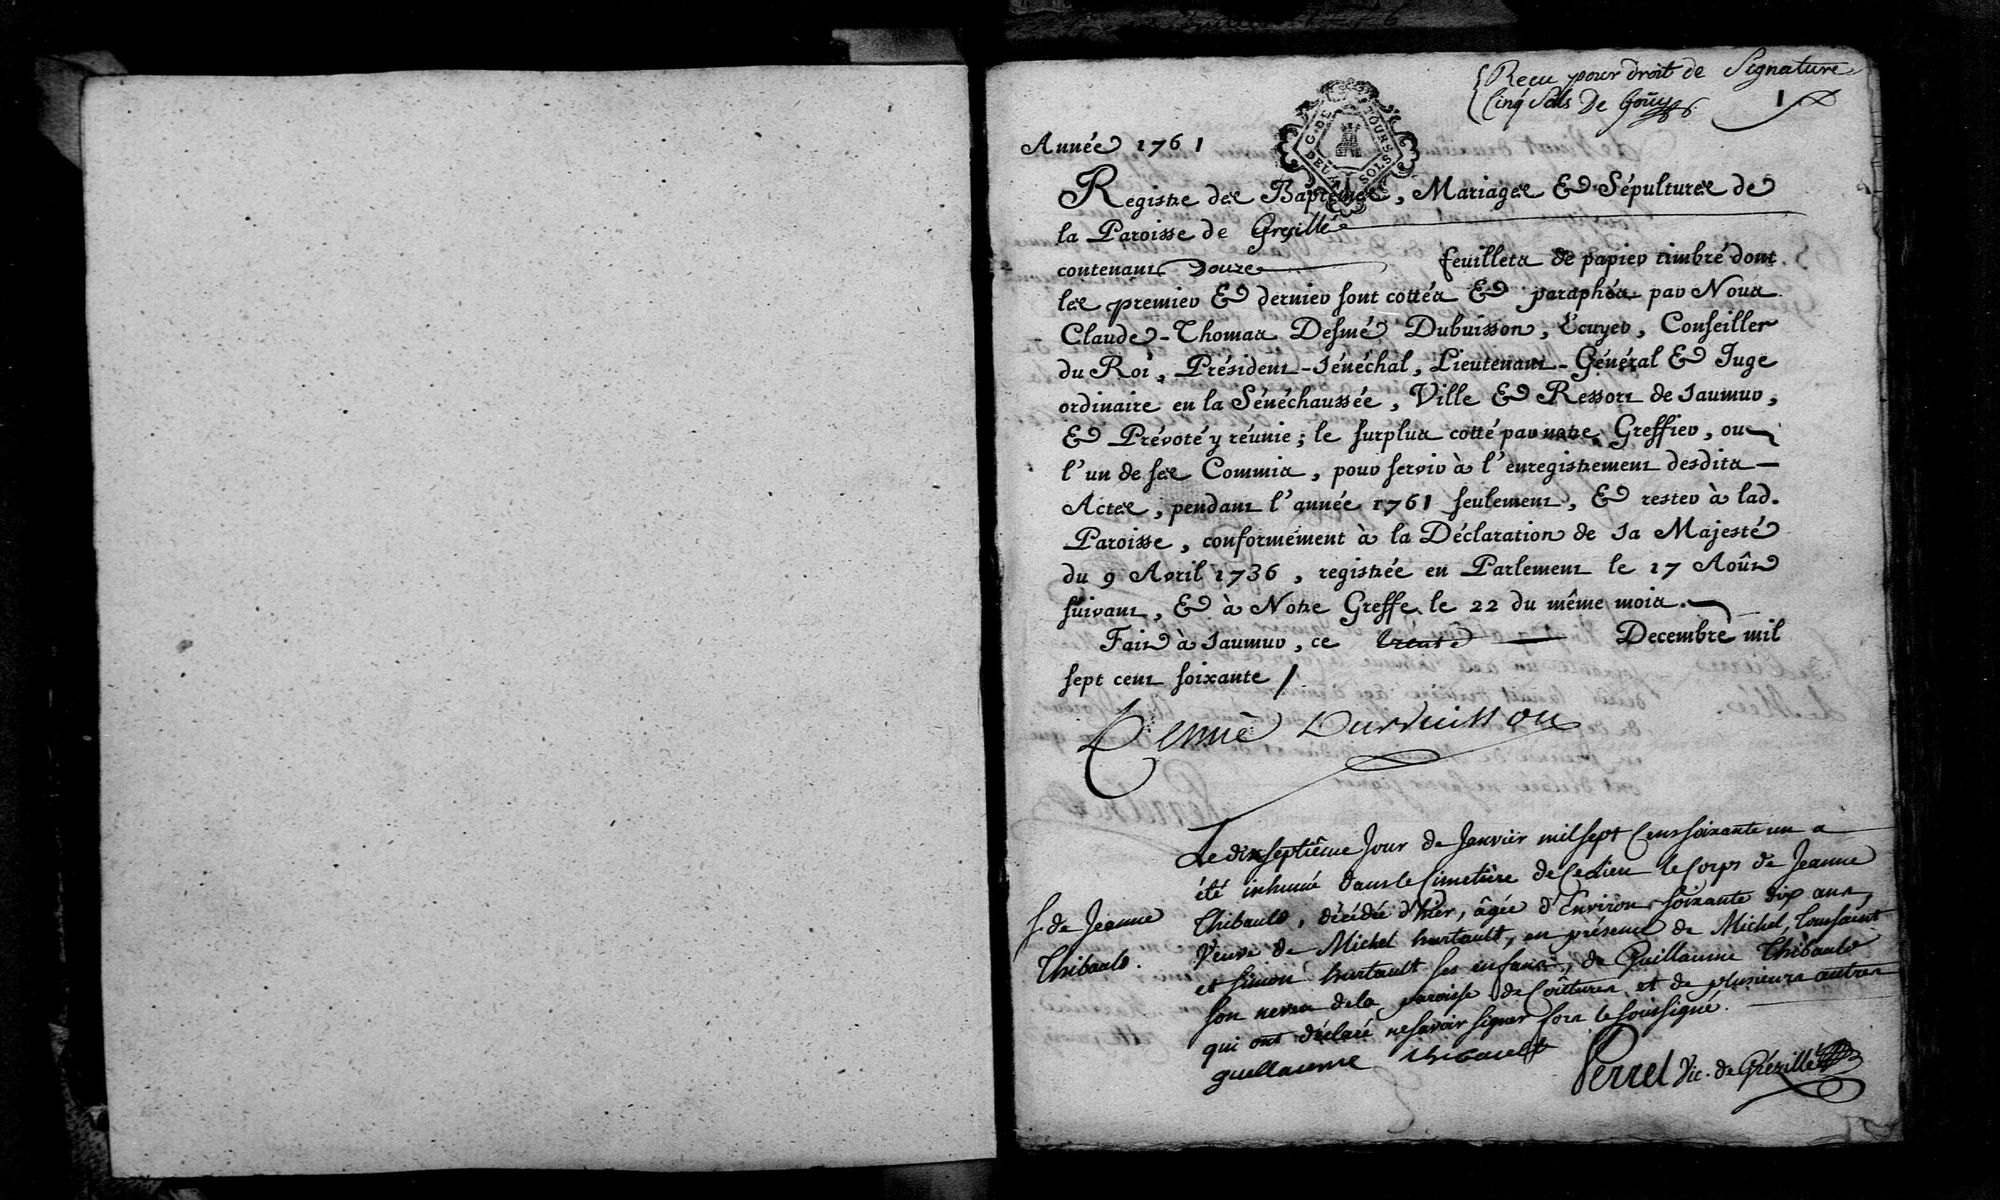 Recu pour droit de Signature
Cinq Sols De Goüy
1
G. DE TOURS
DEUX SOLS
Année 1761
Registre des Baptêmes, Mariages & Sépultures de
la Paroisse de Grezillé
contenant Douze feuillets de papier timbré dont
les premier & dernier sont cottés & paraphés par Nous
Claude-Thomas Desmé Dubuisson, Ecuyer, Conseiller
du Roi, Président-Sénéchal, Lieutenant-Général & Juge
ordinaire en la Sénéchaussée, Ville & Ressort de Saumur,
& Prévoté y réunie; le surplus cotté par notre Greffier, ou
l'un de ses Commis, pour servir à l'enregistrement desdits
Actes, pendant l'année 1761 seulement, & rester à lad.
Paroisse, conformément à la Déclaration de Sa Majesté
du 9 Avril 1736, registrée en Parlement le 17 Août
suivant, & à Notre Greffe le 22 du même mois.
Fait à Saumur, ce trente Decembre mil
sept cent soixante /
Desmé Dubuisson
Le dixseptiême Jour de Janvier mil sept Cens soixante un a
été inhumé dans le Cimetière de Ce Lieu le Corps de Jeanne
S. de Jeanne
Thibault.
Thibault, décédée d'hier, âgée d'Environ soixante dix ans,
Veuve de Michel hurtault, en présence de Michel, Toussaint
et Simon hurtault ses enfans, de Guillaume Thibault
son neveu de la paroisse de Coûtures et de plusieurs autres
qui ont déclaré ne savoir signer fors le soussigné.
guellaume thibault
Perrel Vic. de Grézillé